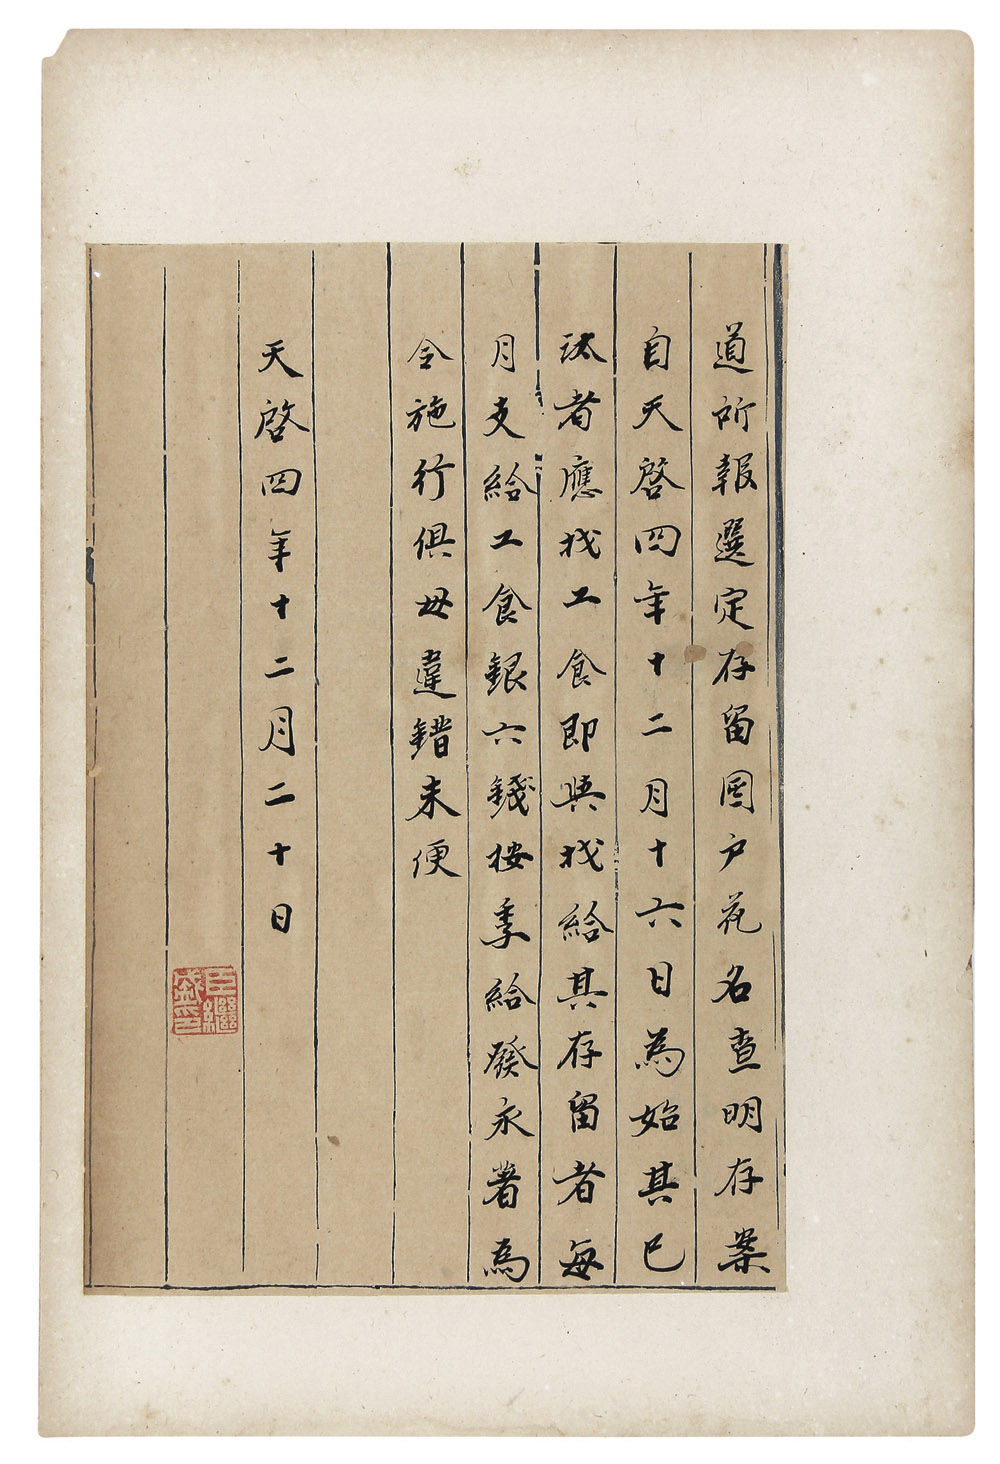 道所報選定存留園户花名查明存案
自天啓四年十二月十六日為始其已
汰者應找工食即與找給其存留者每
月支給工食銀六錢按季給發永著為
令施行俱毋違錯未便
天啓四年十二月二十日
臣繼
盛印